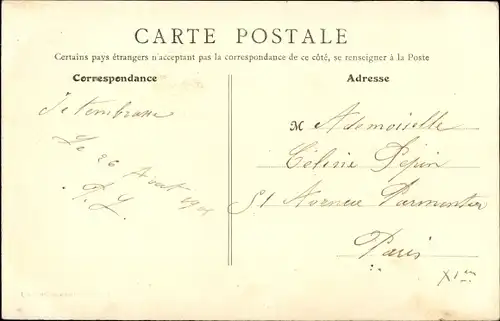 CARTE POSTALE
Certains pays étrangers n'acceptant pas la correspondance de ce côté, se renseigner à la Poste
Correspondance
Adresse
Je t'embrasse
Le 26 Août
P. L.
Mademoiselle
Céline Pépin
51 Avenue Parmentier
Paris
XIem